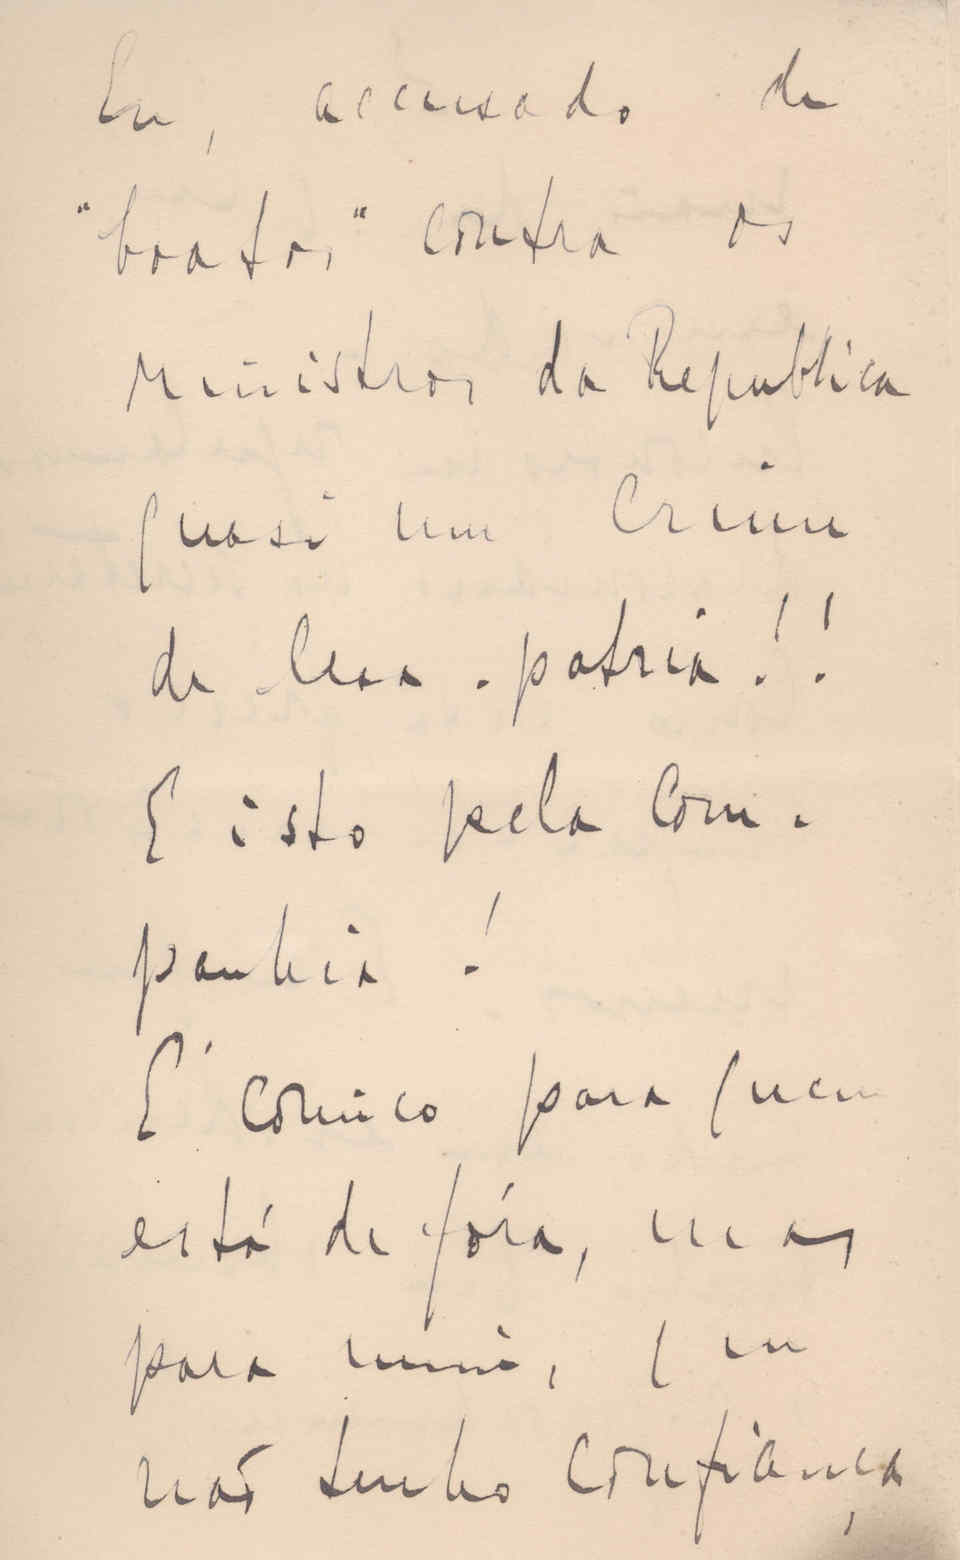 Eu, accusado de
"boatos" contra os
ministros da Republica
quasi um crime
de lesa-patria!!
E isto pela Com-
panhia!
É comico para quem
está de fóra, mas
para mim, que
não tenho confiança